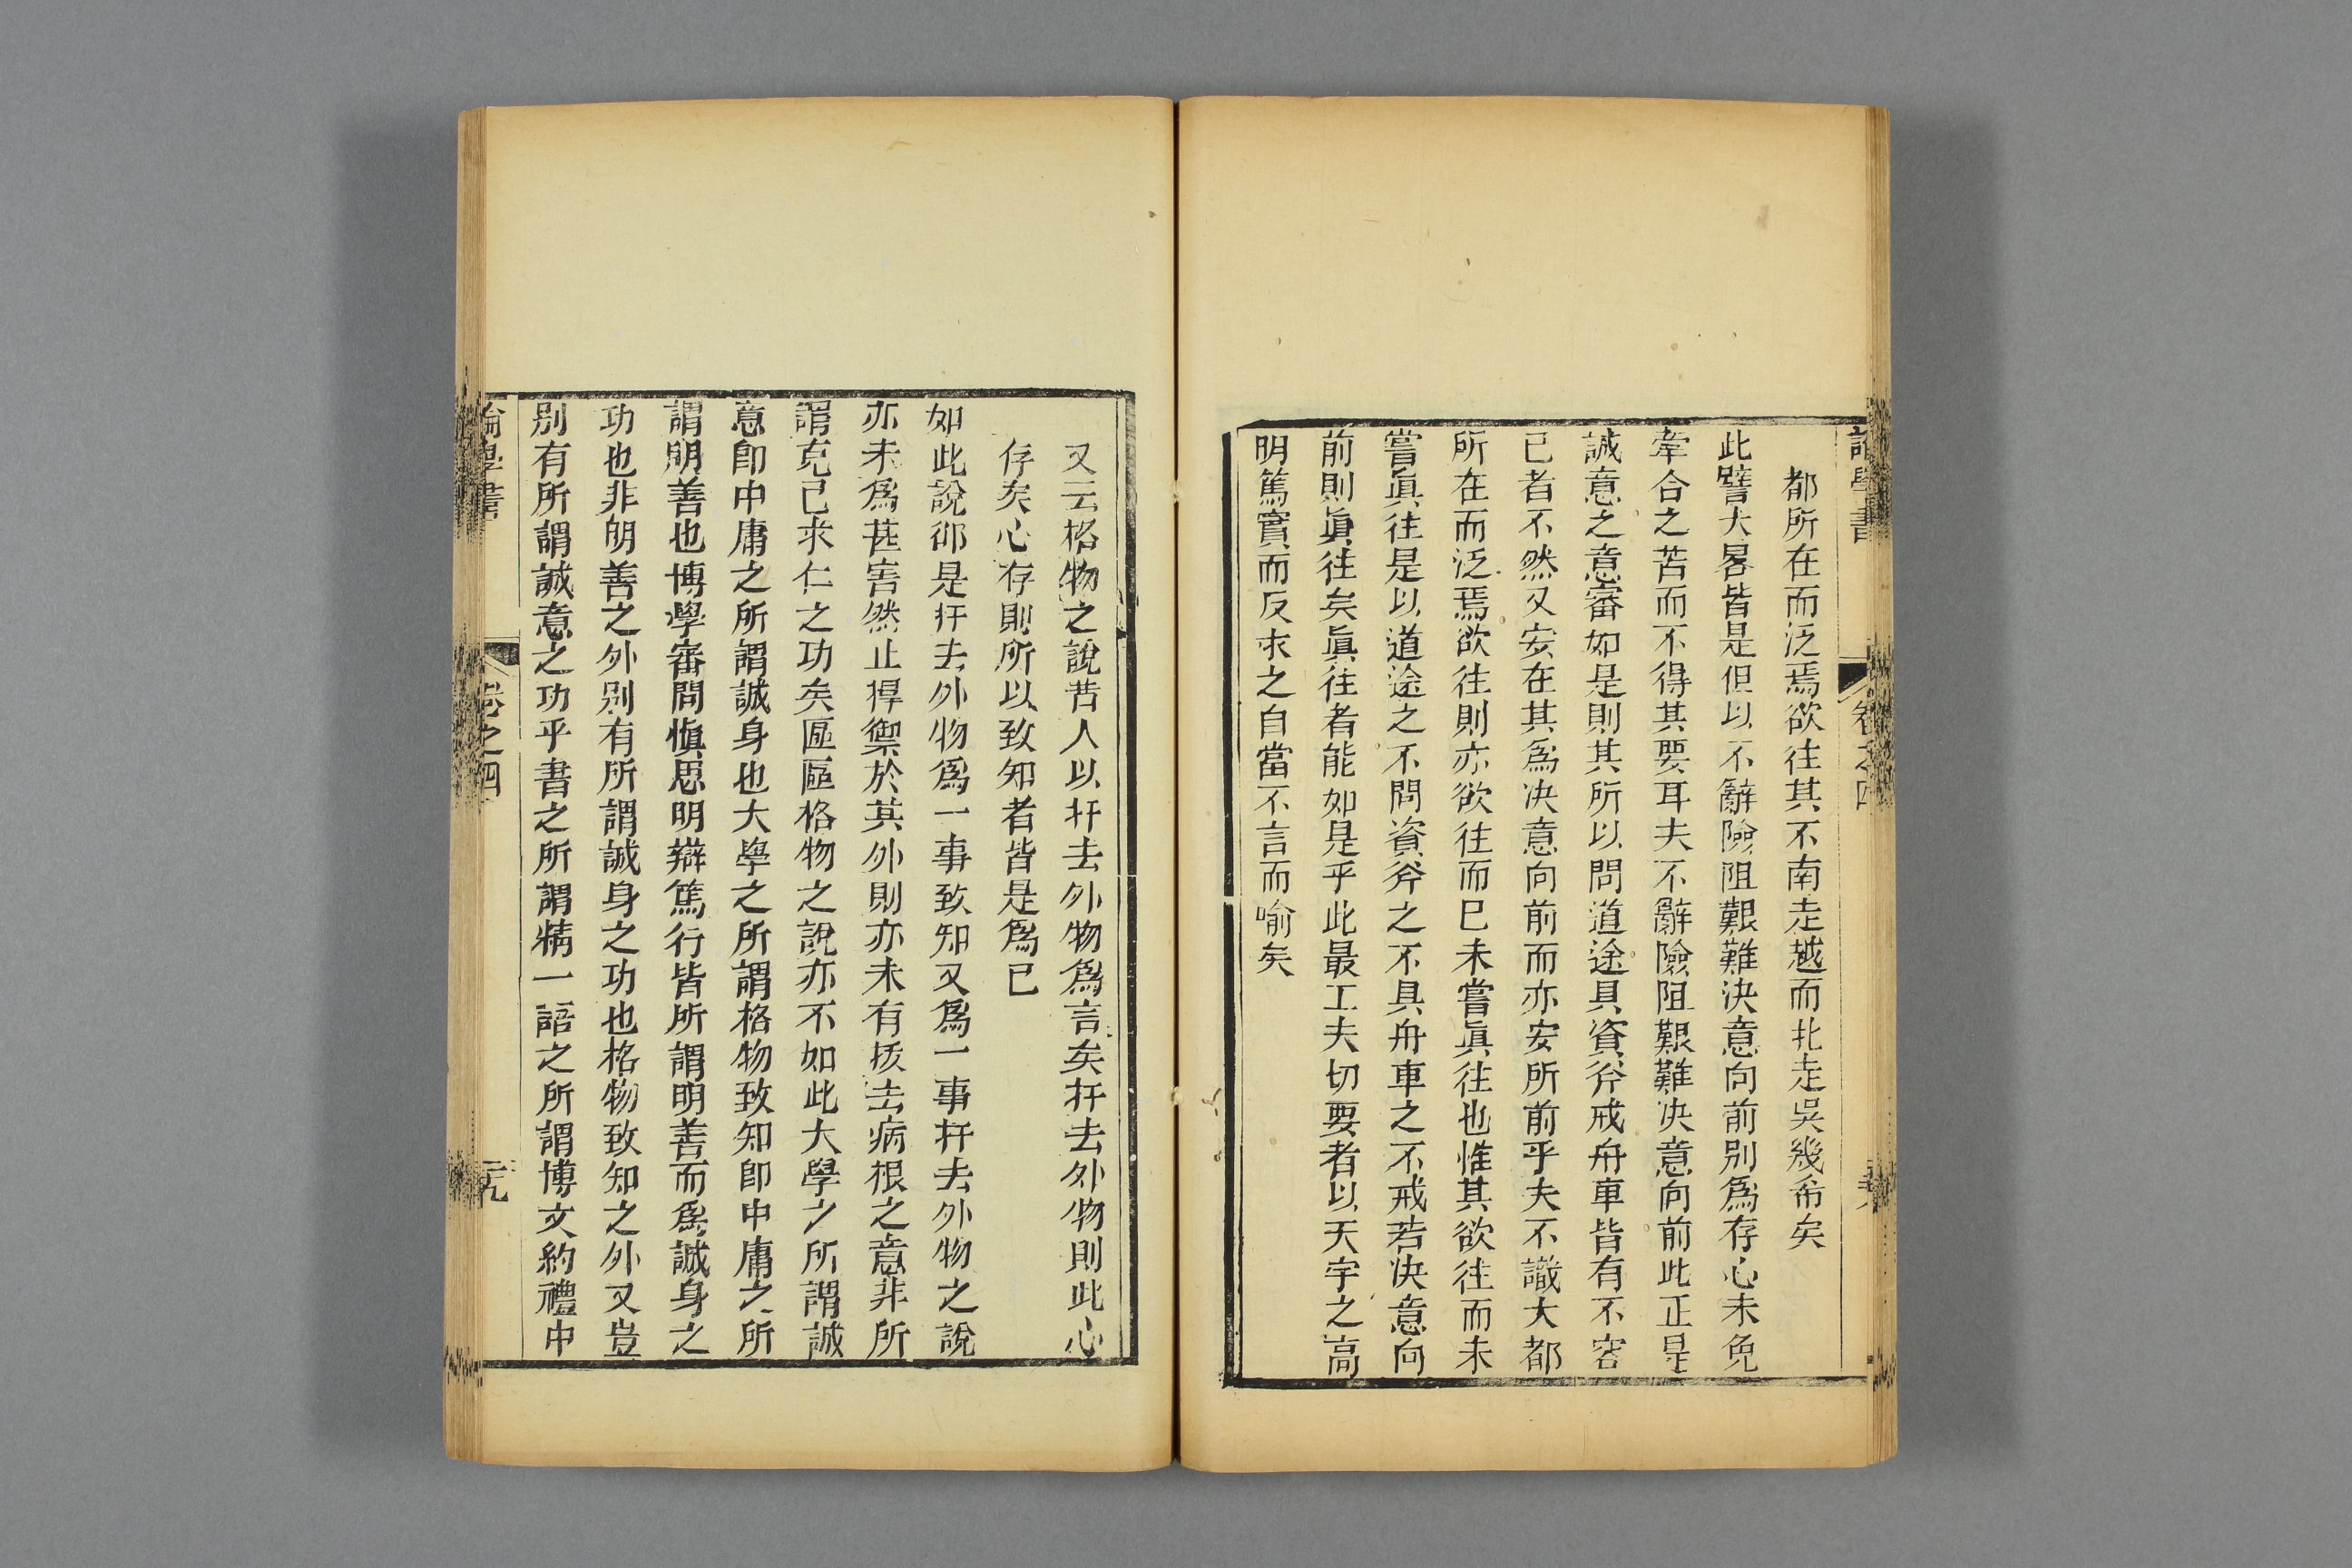 論學書 卷之四
都所在而泛焉欲往其不南走越而北走吳幾希矣
此譬大畧皆是但以不辭險阻艱難決意向前別爲存心未免
牽合之苦而不得其要耳夫不辭險阻艱難决意向前此正是
誠意之意審如是則其所以問道途具資斧戒舟車皆有不容
已者不然又安在其爲决意向前而亦安所前乎夫不識大都
所在而泛焉欲往則亦欲往而已未嘗眞往也惟其欲往而未
嘗眞往是以道途之不問資斧之不具舟車之不戒若决意向
前則眞往矣眞往者能如是乎此最工夫切要者以天宇之高
明篤實而反求之自當不言而喻矣
又云格物之說昔人以扞去外物爲言矣扞去外物則此心
存矣心存則所以致知者皆是爲已
如此說卻是扞去外物爲一事致知又爲一事扞去外物之說
亦未爲甚害然止捍禦於其外則亦未有拔去病根之意非所
謂克己求仁之功矣區區格物之說亦不如此大學之所謂誠
意卽中庸之所謂誠身也大學之所謂格物致知卽中庸之所
謂明善也博學審問愼思明辯篤行皆所謂明善而爲誠身之
功也非明善之外别有所謂誠身之功也格物致知之外又豈
别有所謂誠意之功乎書之所謂精一語之所謂博文約禮中
論學書 卷之四 二九